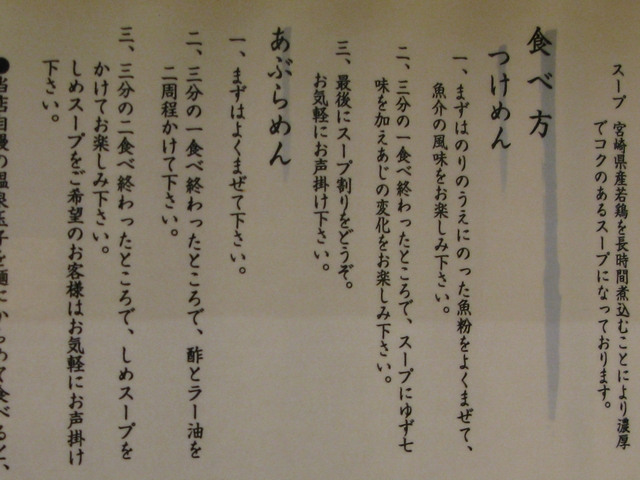 スープ 宮崎県産若鶏を長時間煮込むことにより濃厚
でコクのあるスープになっております。
食べ方
つけめん
一、まずはのりのうえにのった魚粉をよくまぜて、
魚介の風味をお楽しみ下さい。
二、三分の一食べ終わったところで、スープにゆず七
味を加えあじの変化をお楽しみ下さい。
三、最後にスープ割りをどうぞ。
お気軽にお声掛け下さい。
あぶらめん
一、まずはよくまぜて下さい。
二、三分の一食べ終わったところで、酢とラー油を
二周程かけて下さい。
三、三分の二食べ終わったところで、しめスープを
かけてお楽しみ下さい。
しめスープをご希望のお客様はお気軽にお声掛け
下さい。
●当店自慢の温泉玉子を麺にからめて食べると、